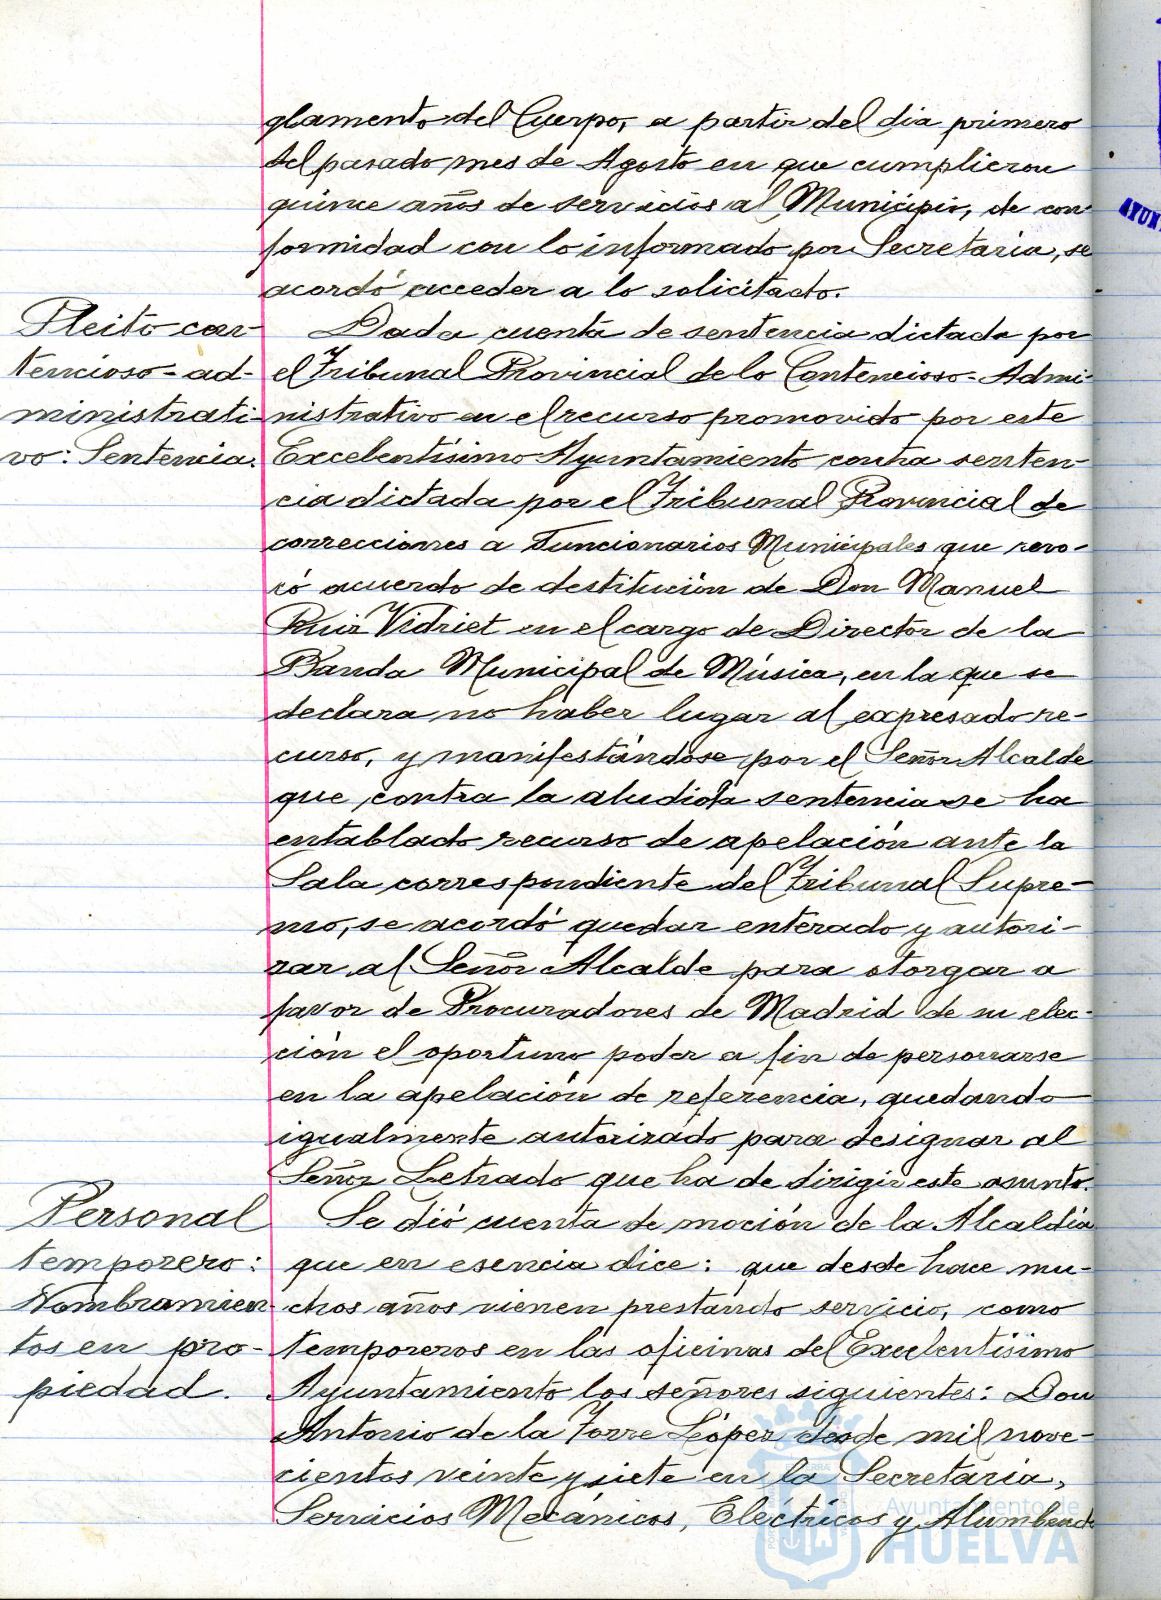 glamento del Cuerpo, a partir del dia primero
del pasado mes de Agosto en que cumplieron
quince años de servicios al Municipio, de con
formidad con lo informado por Secretaria, se
acordó acceder a lo solicitado.
Pleito con-
tencioso-ad-
ministrati-
vo: Sentencia.
Dada cuenta de sentencia dictada por
el Tribunal Provincial de lo Contencioso-Admi-
nistrativo en el recurso promovido por este
Excelentísimo Ayuntamiento contra senten-
cia dictada por el Tribunal Provincial de
correcciones a Funcionarios Municipales que revo-
có acuerdo de destitución de Don Manuel
Ruiz Vidriet en el cargo de Director de la
Banda Municipal de Música, en la que se
declara no haber lugar al expresado re-
curso, y manifestándose por el Señor Alcalde
que contra la aludida sentencia se ha
entablado recurso de apelación ante la
Sala correspondiente del Tribunal Supre-
mo, se acordó quedar enterado y autori-
zar al Señor Alcalde para otorgar a
favor de Procuradores de Madrid de su elec-
ción el oportuno poder a fin de personarse
en la apelación de referencia, quedando
igualmente autorizado para designar al
Señor Letrado que ha de dirigir este asunto.
Personal
temporero:
Nombramien
tos en pro-
piedad.
Se dió cuenta de moción de la Alcaldía
que en esencia dice: que desde hace mu-
chos años vienen prestando servicio, como
temporeros en las oficinas del Excelentísimo
Ayuntamiento los señores siguientes: Don
Antonio de la Torre López desde mil nove-
cientos veinte y siete en la Secretaria,
Servicios Mecánicos, Eléctricos y Alumbrado
Ayuntamiento de
HUELVA